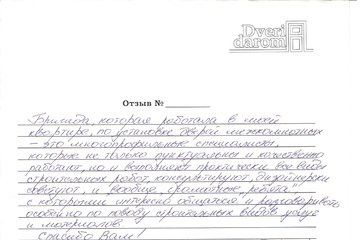 Dveri
darom
Отзыв №
Бригада, которая работала в моей
квартире, по установке дверей межкомнатных
– это многопрофильные специалисты,
которые не только пунктуальны и качественно
работают, но и выполняют практически все виды
строительных работ, консультируют, дизайнерски
советуют, и вообще, грамотные ребята
с которыми интересно общаться и разговаривать,
особенно по поводу строительных видов услуг
и материалов.
Спасибо Вам!